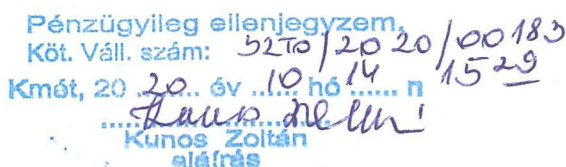 Pénzügyileg ellenjegyzem,
Köt. Váll. szám: SZTO/2020/00183
Kmét, 20 20 év 10 hó 14 n 15 29
Kunos Zoltán
aláírás